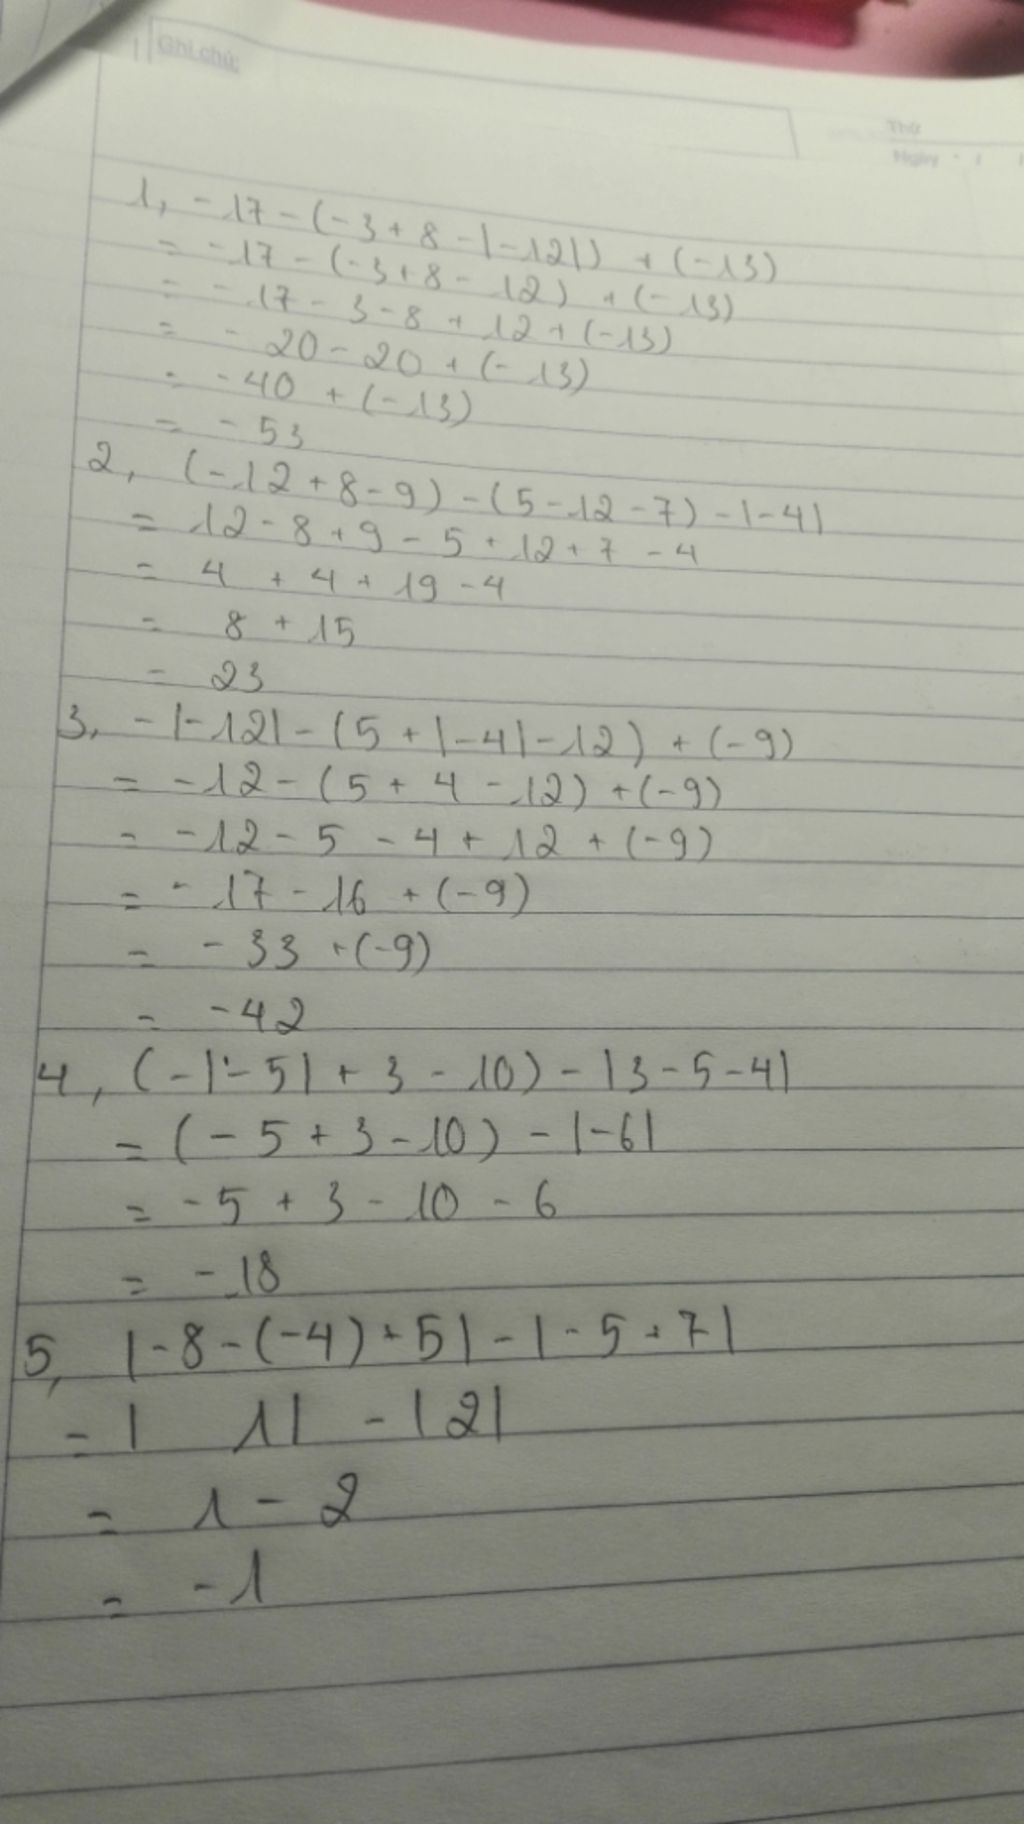 Ghi chú:
Thứ
Ngày
1, -17-(-3+8-|-12|) +(-13)
= -17-(-3+8-12) +(-13)
= -17-3-8+12+(-13)
= -20-20+(-13)
= -40 +(-13)
= -53
2, (-12+8-9)-(5-12-7)-|-4|
= 12-8+9-5+12+7-4
= 4+4+19-4
= 8+15
= 23
3, -|-12|-(5+|-4|-12)+(-9)
= -12-(5+4-12)+(-9)
= -12-5-4+12+(-9)
= -17-16+(-9)
= -33+(-9)
= -42
4, (-|-5|+3-10)-|3-5-4|
= (-5+3-10)-|-6|
= -5+3-10-6
= -18
5, |-8-(-4)+5|-|-5+7|
= | 1|-|2|
= 1-2
= -1